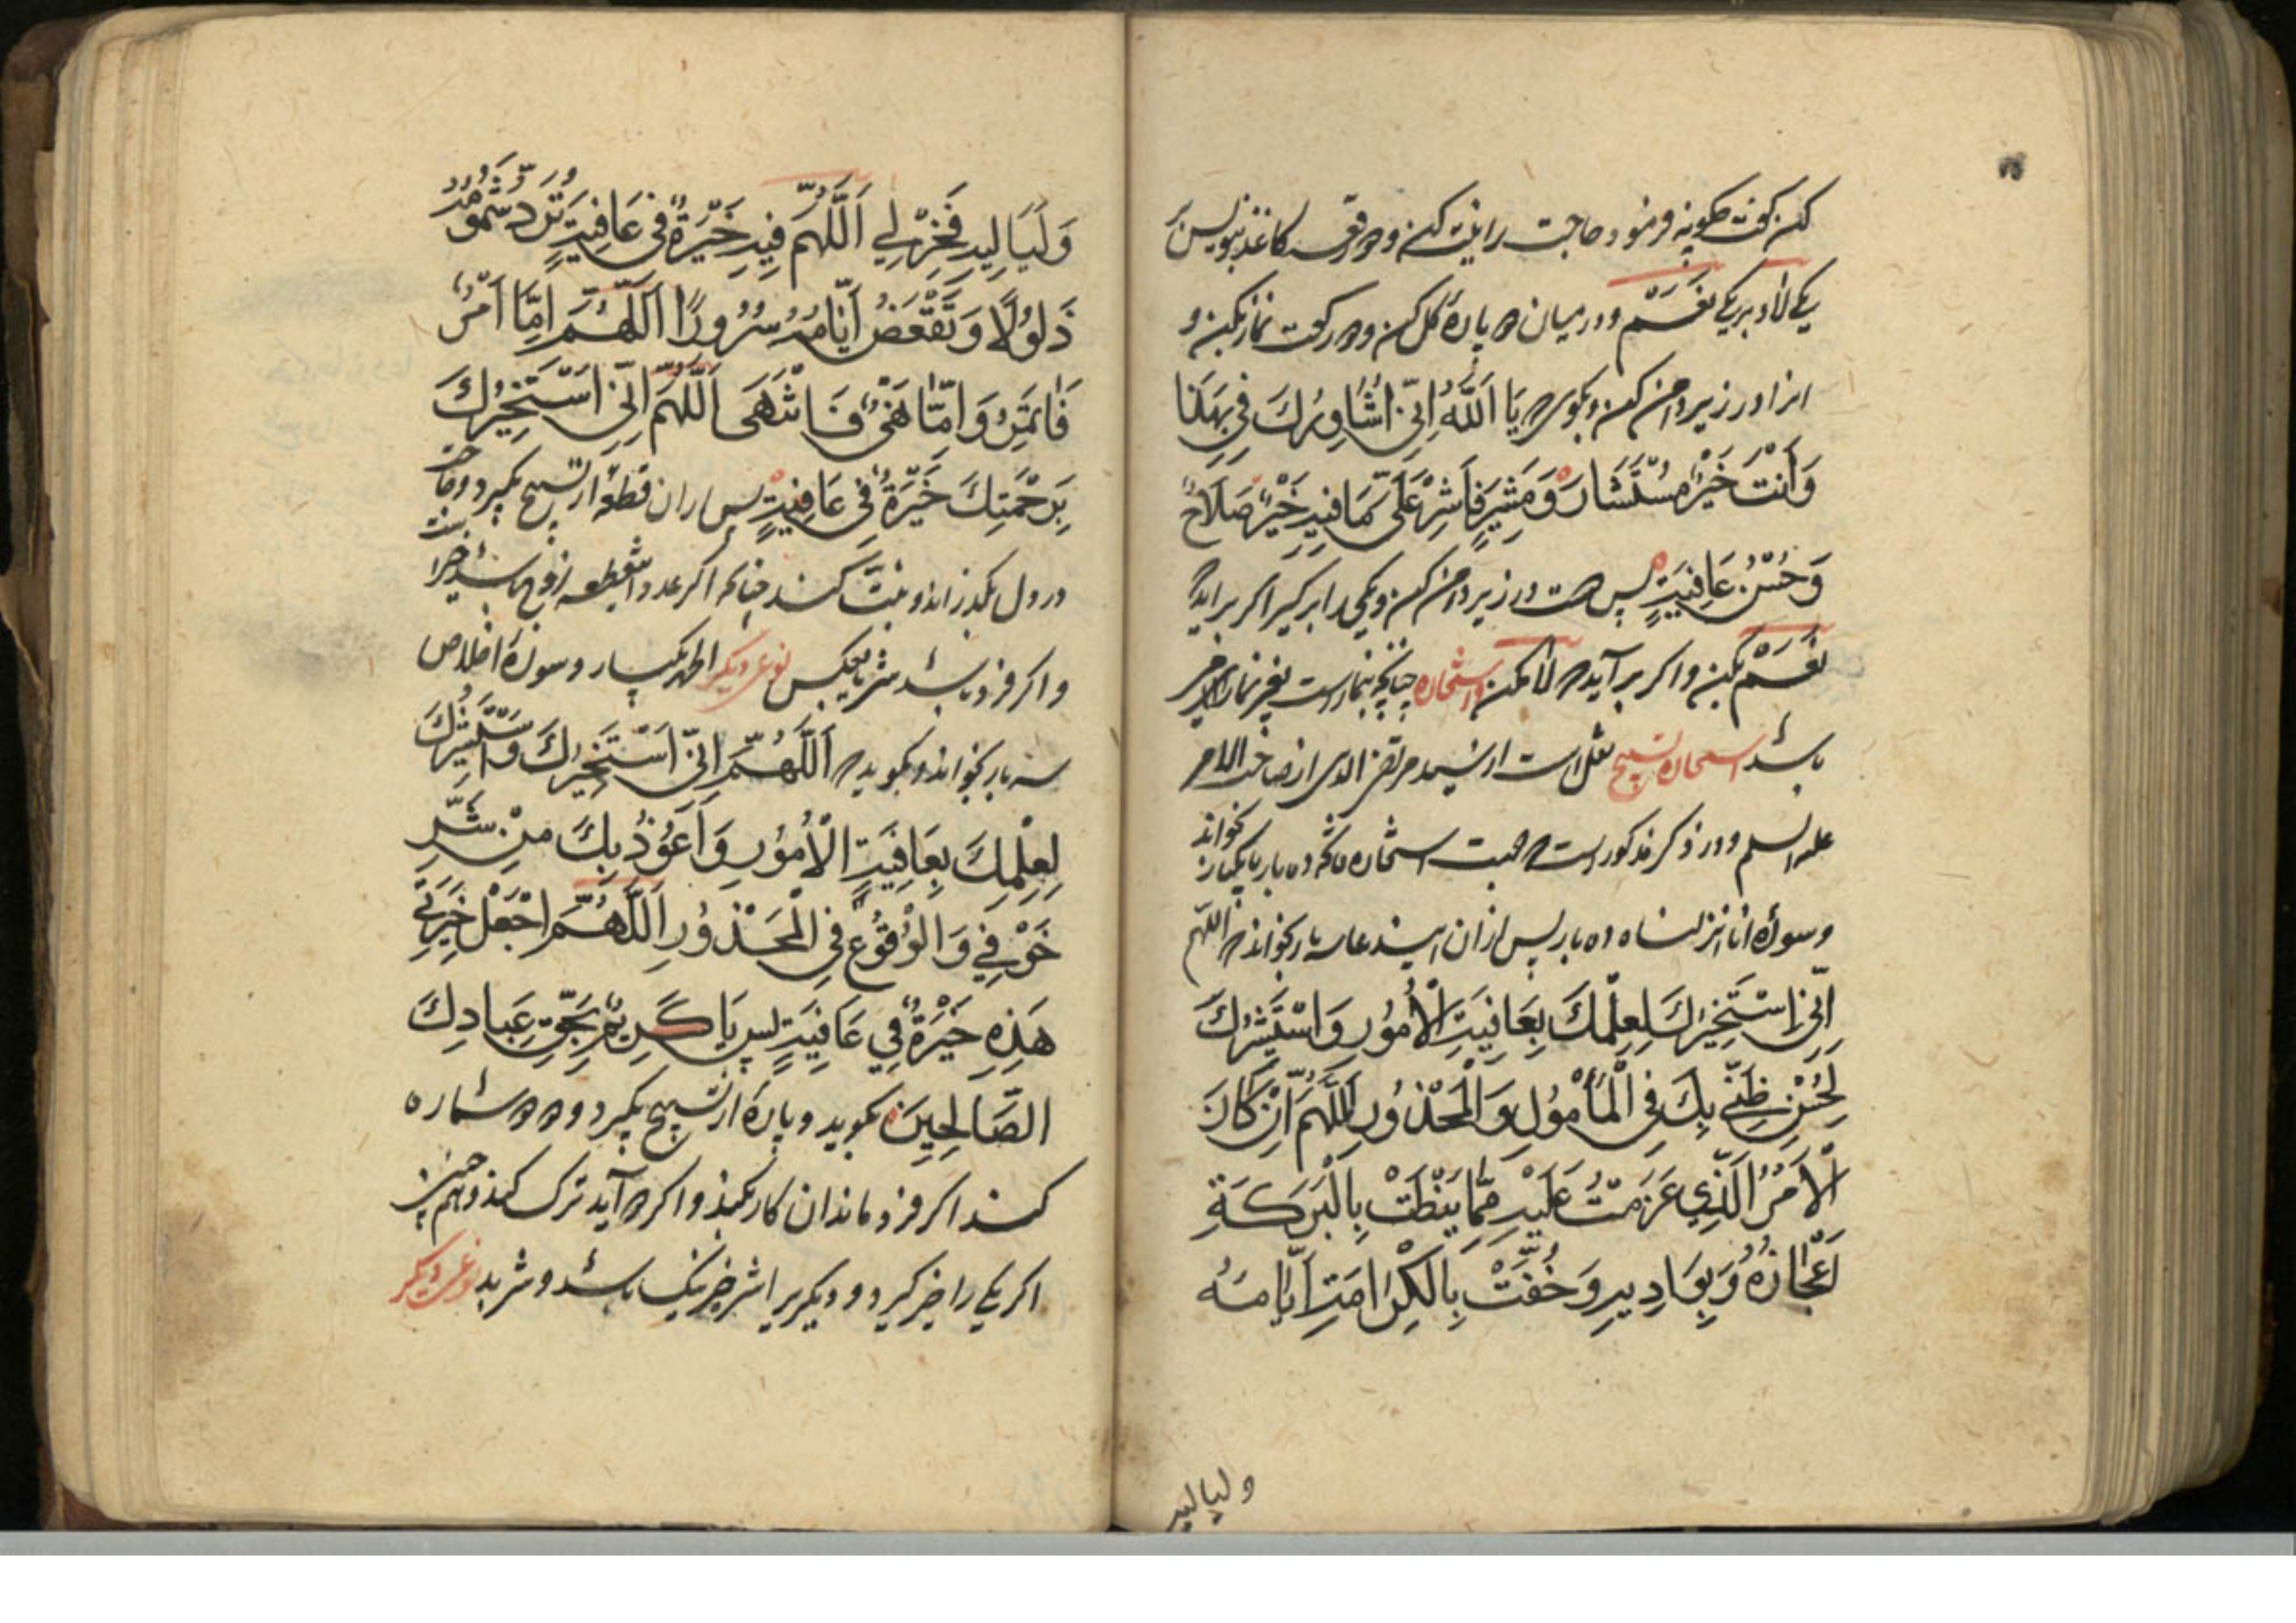 کن گفت چگونه فرمود حاجت را نیت کن و دو رقعه کاغذ بنویس بر
یکی لا و بر یکی نَعَمْ و در میان دو پارهٔ گل کن و دو رکعت نماز بکن و
انرا در زیر دامن کن و بگوی که یَا اَللّٰهُ اِنِّی اُشَاوِرُكَ فِی
وَاَنْتَ خَیْرُ مُسْتَشَارٍ وَمُشِیرٍ فَاَشِرْ عَلَیَّ بِمَا فِیهِ خَیْرٌ صَلَاحٌ
وَحُسْنُ عَافِیَتٍ پس دست در زیر دامن کن و یکی را برگیر اگر براید که
نَعَمْ بکن و اگر برآید که لا مکن و استخاره چنانچه بنمازست بغیر نماز نیز
باشد استخاره تسبیح نقل است از سید مرتضی از صاحب الامر
علیه السلم و در ذکر مذکور است که جهت استخاره فاتحه ده بار یا یکبار بخواند
و سورهٔ انا انزلناه ده بار پس از ان این دعا سه بار بخواند که اللّهم
اِنِّی اَسْتَخِیرُكَ لِعِلْمِكَ بِعَافِیَتِ الْاُمُورِ وَاَسْتَشِیرُكَ
لِحُسْنِ ظَنِّی بِكَ فِی الْمَأْمُولِ وَالْمَحْذُورِ اَللّٰهُمَّ اِنْ كَانَ
الْاَمْرُ الَّذِی عَزَمْتُ عَلَیْهِ مِمَّا یَنْطَتْ بِالْبَرَكَةِ
اَعْجَازُهُ وَبَوَادِیهِ وَحُفَّتْ بِالْكِرَامَتِ اَیَّامُهُ
ولیالیه
وَلَیَالِیهِ فَخِرْلِی اَللّٰهُمَّ فِیهِ خَیْرَةً فِی عَافِیَتٍ تَرُدُّ شُمُوسُهُ
ذَلُولًا وَتَقْعَضُ اَیَّامُهُ سُرُورًا اَللّٰهُمَّ اِمَّا اَمْرٌ
فَاَتَمِرُ وَاِمَّا نَهْیٌ فَانْتَهَی اَللّٰهُمَّ اِنِّی اَسْتَخِیرُكَ
بِرَحْمَتِكَ خَیْرَةً فِی عَافِیَتٍ پس از ان قطعهٔ از تسبیح بگیرد و حاجت
در دل بگذراند و نیت کند چنانکه اگر عدد این قطعه زوج باشد خیر است
و اگر فرد باشد شر یا بعکس نوعی دیگر الحمد یکبار و سورهٔ اخلاص
سه بار بخواند و بگوید که اَللّٰهُمَّ اِنِّی اَسْتَخِیرُكَ وَاَسْتَشِیرُكَ
لِعِلْمِكَ بِعَافِیَتِ الْاُمُورِ وَاَعُوذُ بِكَ مِنْ شَرِّ
خَوْفِی وَالْوُقُوعِ فِی الْمَحْذُورِ اَللّٰهُمَّ اجْعَلْ خَیْرَتِی
هَذِهِ خَیْرَةً فِی عَافِیَتٍ پس یَا كَرِیمُ بِحَقِّ عِبَادِكَ
الصَّالِحِینَ بگوید و پارهٔ از تسبیح بگیرد و دو دو شماره
کند اگر فرد ماند ان کار بکند و اگر دو آید ترک کند و هم چنین
اگر یکی را خیر گیرد و دیگری را شر خیر نیک باشد و شر بد نوعی دیگر